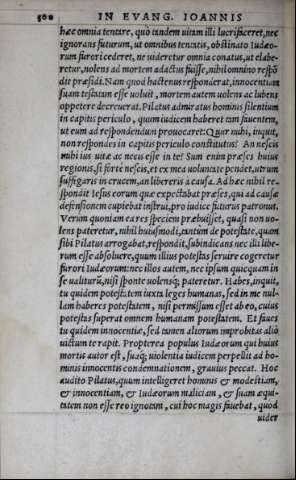 500 IN EVANG. IOANNIS
hæc omnia tentare, quò tandem uitam illi lucrificeret, nec
ignorans futurum, ut omnibus tentatis, obstinato Iudæo-
rum furori cederet, ne uideretur omnia conatus, ut elabe-
retur, nolens ad mortem adactus fuisse, nihil omnino respō
dit præsidi. Nam quod hactenus responderat, innocentiam
suam testatam esse uoluit, mortem autem uolens ac lubens
oppetere decreuerat. Pilatus admiratus hominis silentium
in capitis periculo, quum iudicem haberet tam fauentem,
ut eum ad respondendum prouocaret: Quur mihi, inquit,
non respondes in capitis periculo constitutus? An nescis
mihi ius uitæ ac necis esse in te? Sum enim præses huius
regionis, si fortè nescis, et ex mea uoluntate pendet, utrum
suffigaris in crucem, an libereris à causa. Ad hæc nihil re-
spondit Iesus eorum quæ expectabat præses, qui ad causæ
defensionem cupiebat instrui, pro iudice futurus patronus.
Verum quoniam ea res speciem præbuisset, quasi non uo-
lens pateretur, nihil huiusmodi, tantum de potestate, quam
sibi Pilatus arrogabat, respondit, subindicans nec illi libe-
rum esse absoluere, quum illius potestas seruire cogeretur
furori Iudæorum: nec illos autem, nec ipsum quicquam in
se ualiturū, nisi sponte uolensq; pateretur. Habes, inquit,
tu quidem potestatem iuxta leges humanas, sed in me nul-
lam haberes potestatem, nisi permissum esset ab eo, cuius
potestas superat omnem humanam potestatem. Et faues
tu quidem innocentiæ, sed tamen aliorum improbitas aliò
uictum te rapit. Propterea populus Iudæorum qui huius
mortis autor est, suaq; uiolentia iudicem perpellit ad ho-
minis innocentis condemnationem, grauius peccat. Hoc
audito Pilatus, quum intelligeret hominis & modestiam,
& innocentiam, & Iudæorum maliciam, & suam æqui-
tatem non esse reo ignotam, cui hoc magis fauebat, quod
uider